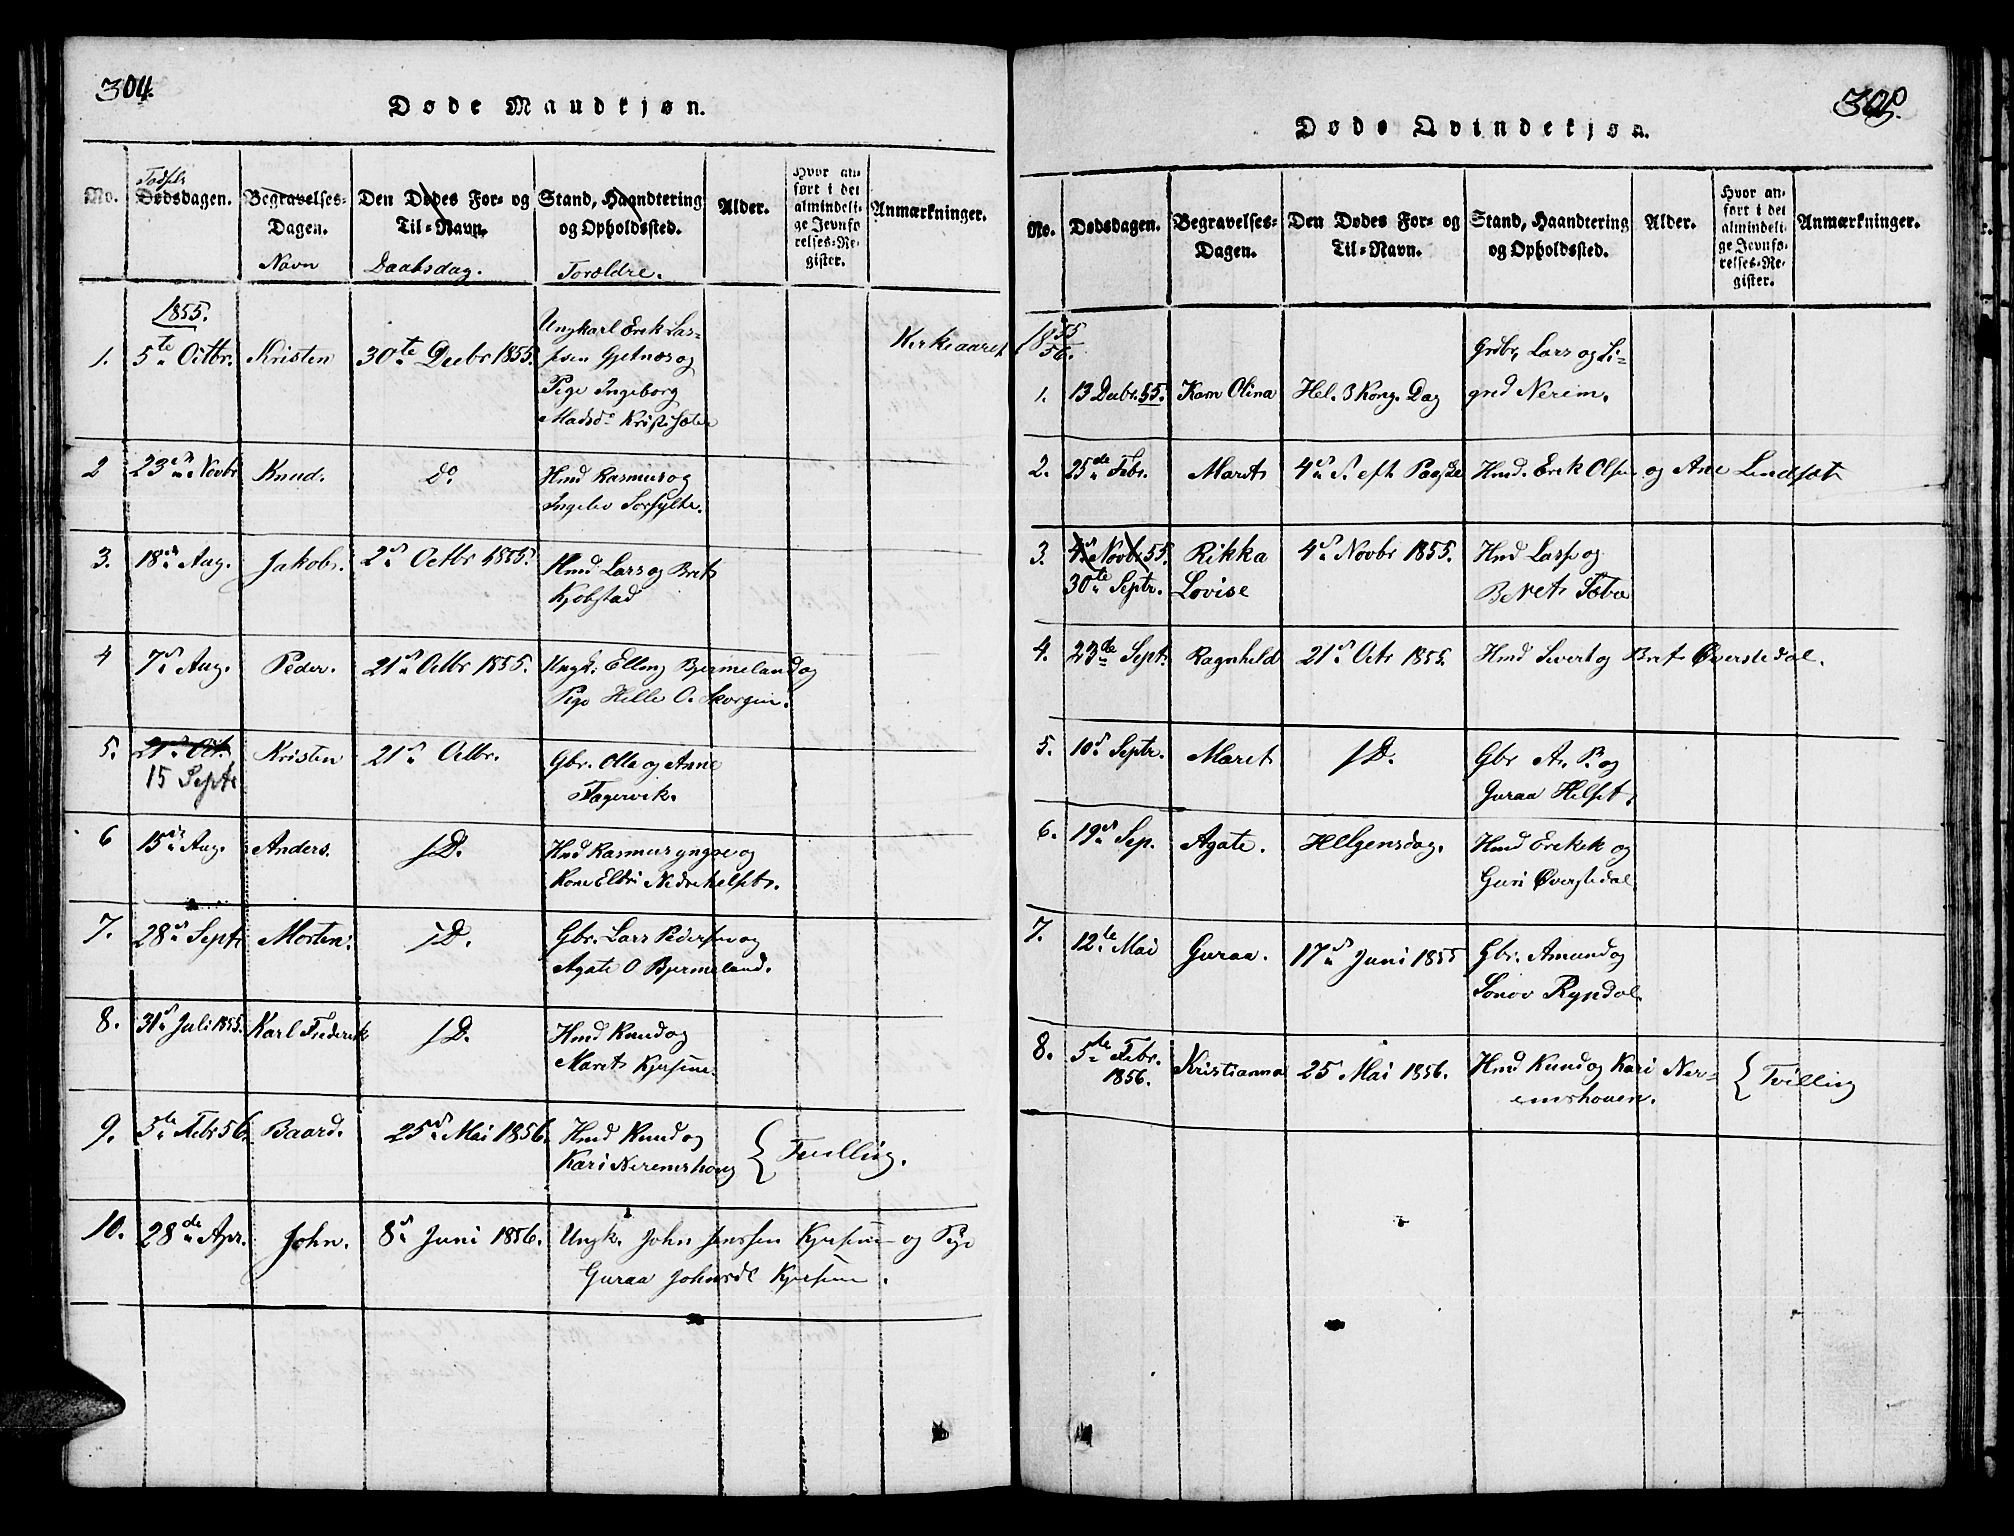 304.
Døde Mandkjøn.
No.
Fødsels
Dødsdagen.
Begravelses-
Dagen.
Navn
Den Dødes For- og
Til-Navn.
Daabsdag.
Stand, Haandtering
og Opholdssted.
Forældre.
Alder.
Hvor an-
ført i det
almindeli-
ge Jevnfø-
relses-Re-
gister.
Anmærkninger.
1855.
1. 5te Octbr. Kristen 30te Decbr 1855. Ungkarl Erek Lar-
sen Gjetnes og
Pige Ingeborg
Madsd. Kristisæter
Kirkeaaret
2 23de Novbr Knud. do Hmd Rasmus og
Ingelev Sorfylte.
3. 18de Aug. Jakob. 2d Octbr 1855. Hmd Lars og Bret
Kjøbstad
4 7d Aug. Peder. 21d Octbr 1855. Ungk. Elling Bjermeland og
Pige Hille O. Skorgen.
5. 21d Oct. Kristen 21d Octbr. Gbr. Olle og Anne
15 Septr Fagervik.
6 15de Aug. Anders. s D. Hmd Rasmus yngre og
Kone Eldri Nedrehelset.
7. 28d Septr Morten. s D. Gbr. Lars Pedersen og
Agate O Bjermeland.
8. 31d Juli 1855. Karl Frederik s D. Hmd Knud og
Maret Kjersem.
9. 5te Febr 56. Baard. 25d Mai 1856. Hmd Knud og
Kari Neremshoug { Tvilling.
10. 28de Apr. John. 8d Juni 1856. Ungk. John Jenssen Kjersem og Pige
Guraa Johnsdl Kjersem.
305.
Døde Qvindekjøn.
No.
Dødsdagen.
Begravelses-
Dagen.
Den Dødes For- og
Til-Navn.
Stand, Haandtering
og Opholdssted.
Alder.
Hvor an-
ført i det
almindeli-
ge Jevnfø-
relses-Re-
gister.
Anmærkninger.
1855
56.
1. 13 Decbr. 55. Karn Olina Hel. 3 Kong. Dag Grdbr. Lars og Si-
gred Nerem.
2. 25de Febr. Maret 4d S. eft Paaske Hmd. Erek Olsen og Ane Lindset
3. 4d Novbr 55. Rikka 4d Novbr 1855. Hmd Lars og
30te Septr. Lovise Beret Sæbø
4. 23de Sept. Ragnhild 21d Octr 1855. Hmd Sivert og Bret Øverstedal.
5. 10d Septr. Maret s D. Gbr A. P. og
Guraa Helset.
6. 19d Sep. Agate. Helgensdag. Hmd Erekek og
Guri Øverstedal
7. 12te Mai Guraa. 17d Juni 1855 Gbr. Amund og
Sonov Rypdal
8. 5te Febr. Kristianna 25 Mai 1856. Hmd Knud og Kari Ner- { Tvilling
1856. emshouen.